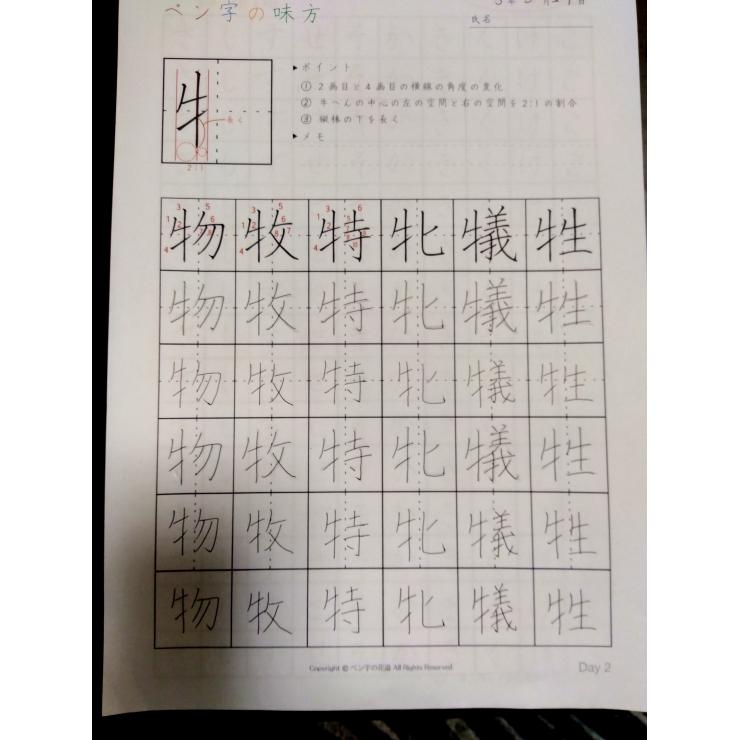 ペン字の味方
氏名
▶ポイント
① 2画目と4画目の横線の角度の変化
② 牛へんの中心の左の空間と右の空間を2:1の割合
③ 縦棒の下を長く
▶メモ
牛
長く
2:1
物 牧 特 牝 犠 牲
物 牧 特 牝 犠 牲
物 牧 特 牝 犠 牲
物 牧 特 牝 犠 牲
物 牧 特 牝 犠 牲
物 牧 特 牝 犠 牲
Copyright © ペン字の花道 All Rights Reserved.
Day 2